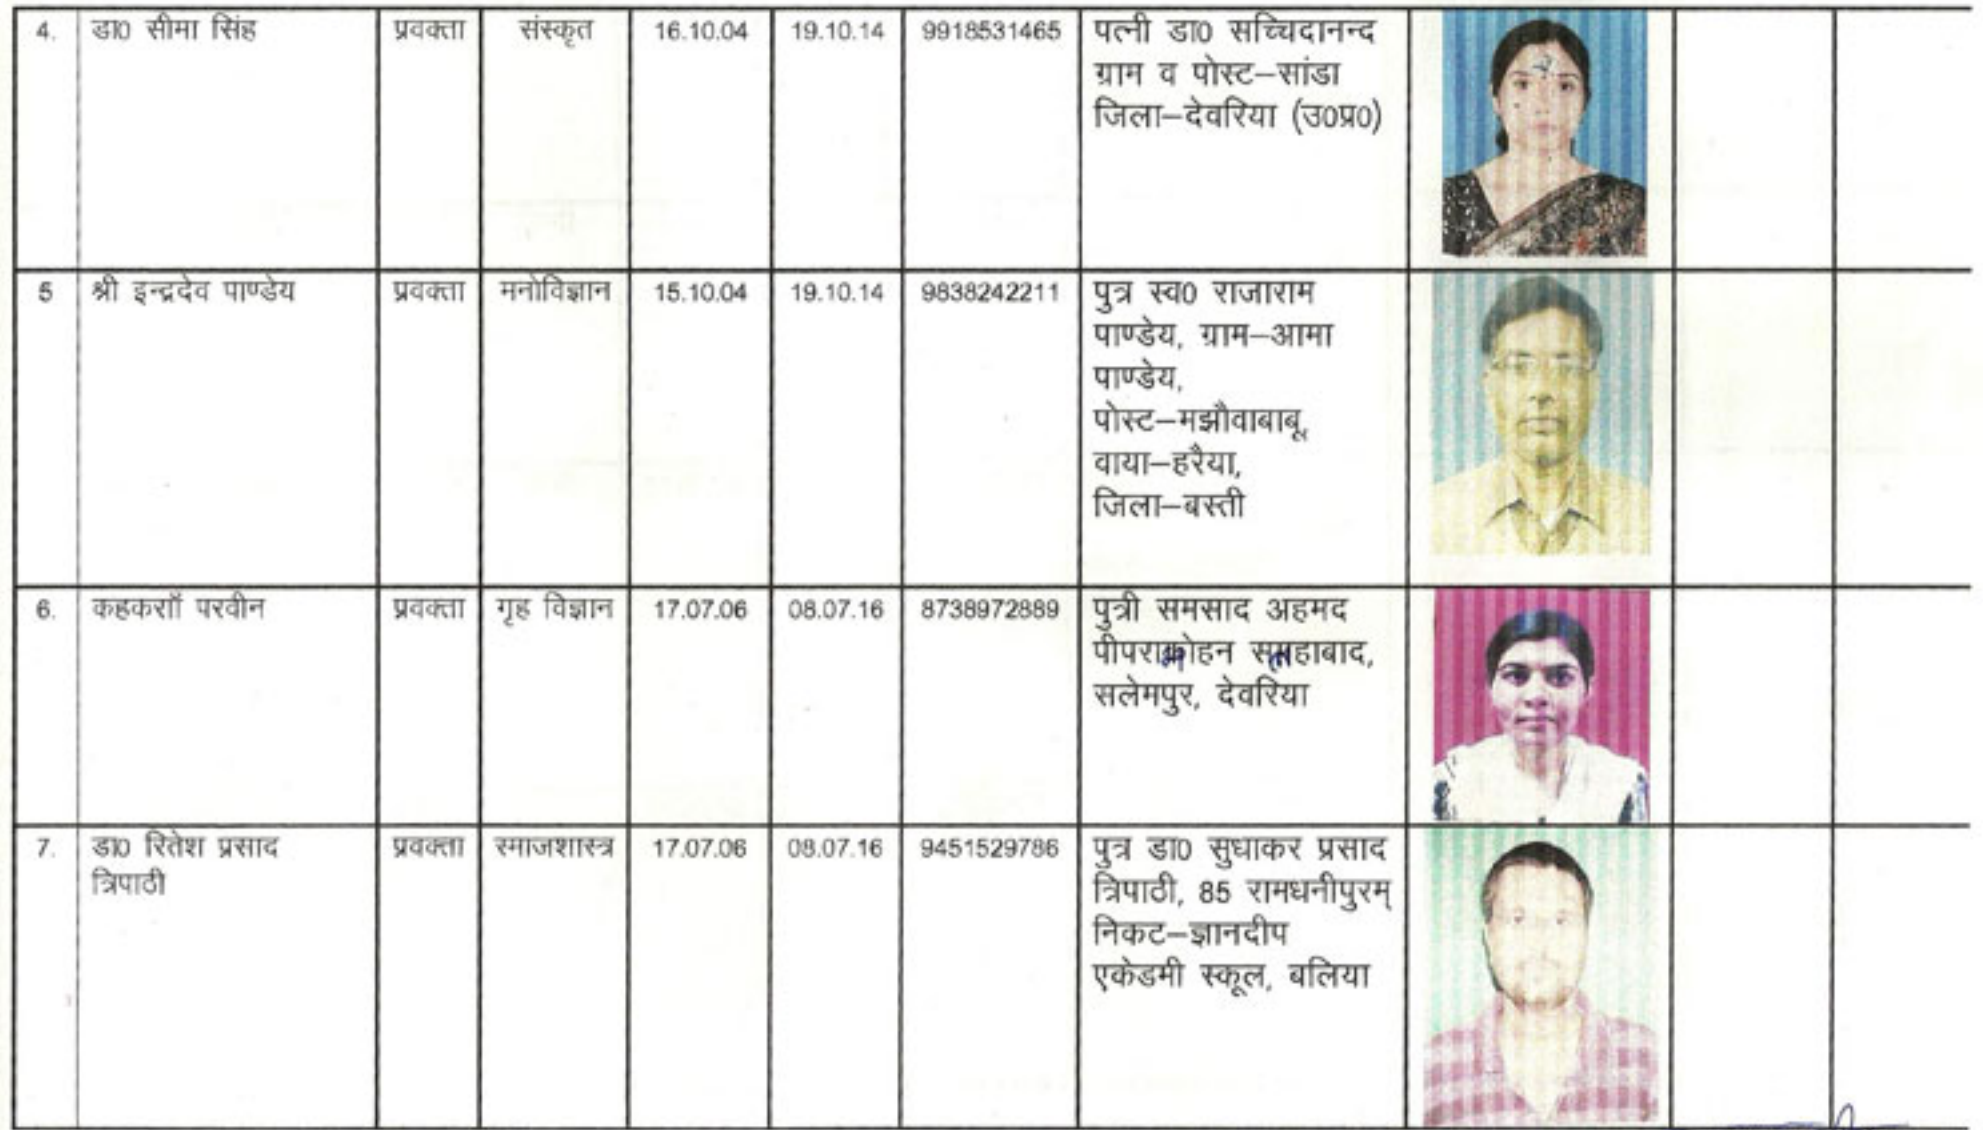 4. डा0 सीमा सिंह प्रवक्ता संस्कृत 16.10.04 19.10.14 9918531465 पत्नी डा0 सच्चिदानन्द
ग्राम व पोस्ट–सांडा
जिला–देवरिया (उ0प्र0)
5 श्री इन्द्रदेव पाण्डेय प्रवक्ता मनोविज्ञान 15.10.04 19.10.14 9838242211 पुत्र स्व0 राजाराम
पाण्डेय, ग्राम–आमा
पाण्डेय,
पोस्ट–मझौवाबाबू,
वाया–हरैया,
जिला–बस्ती
6. कहकशॉं परवीन प्रवक्ता गृह विज्ञान 17.07.06 08.07.16 8738972889 पुत्री समसाद अहमद
सलेमपुर, देवरिया
7. डा0 रितेश प्रसाद प्रवक्ता समाजशास्त्र 17.07.06 08.07.16 9451529786 पुत्र डा0 सुधाकर प्रसाद
त्रिपाठी त्रिपाठी, 85 रामधनीपुरम्
निकट–ज्ञानदीप
एकेडमी स्कूल, बलिया